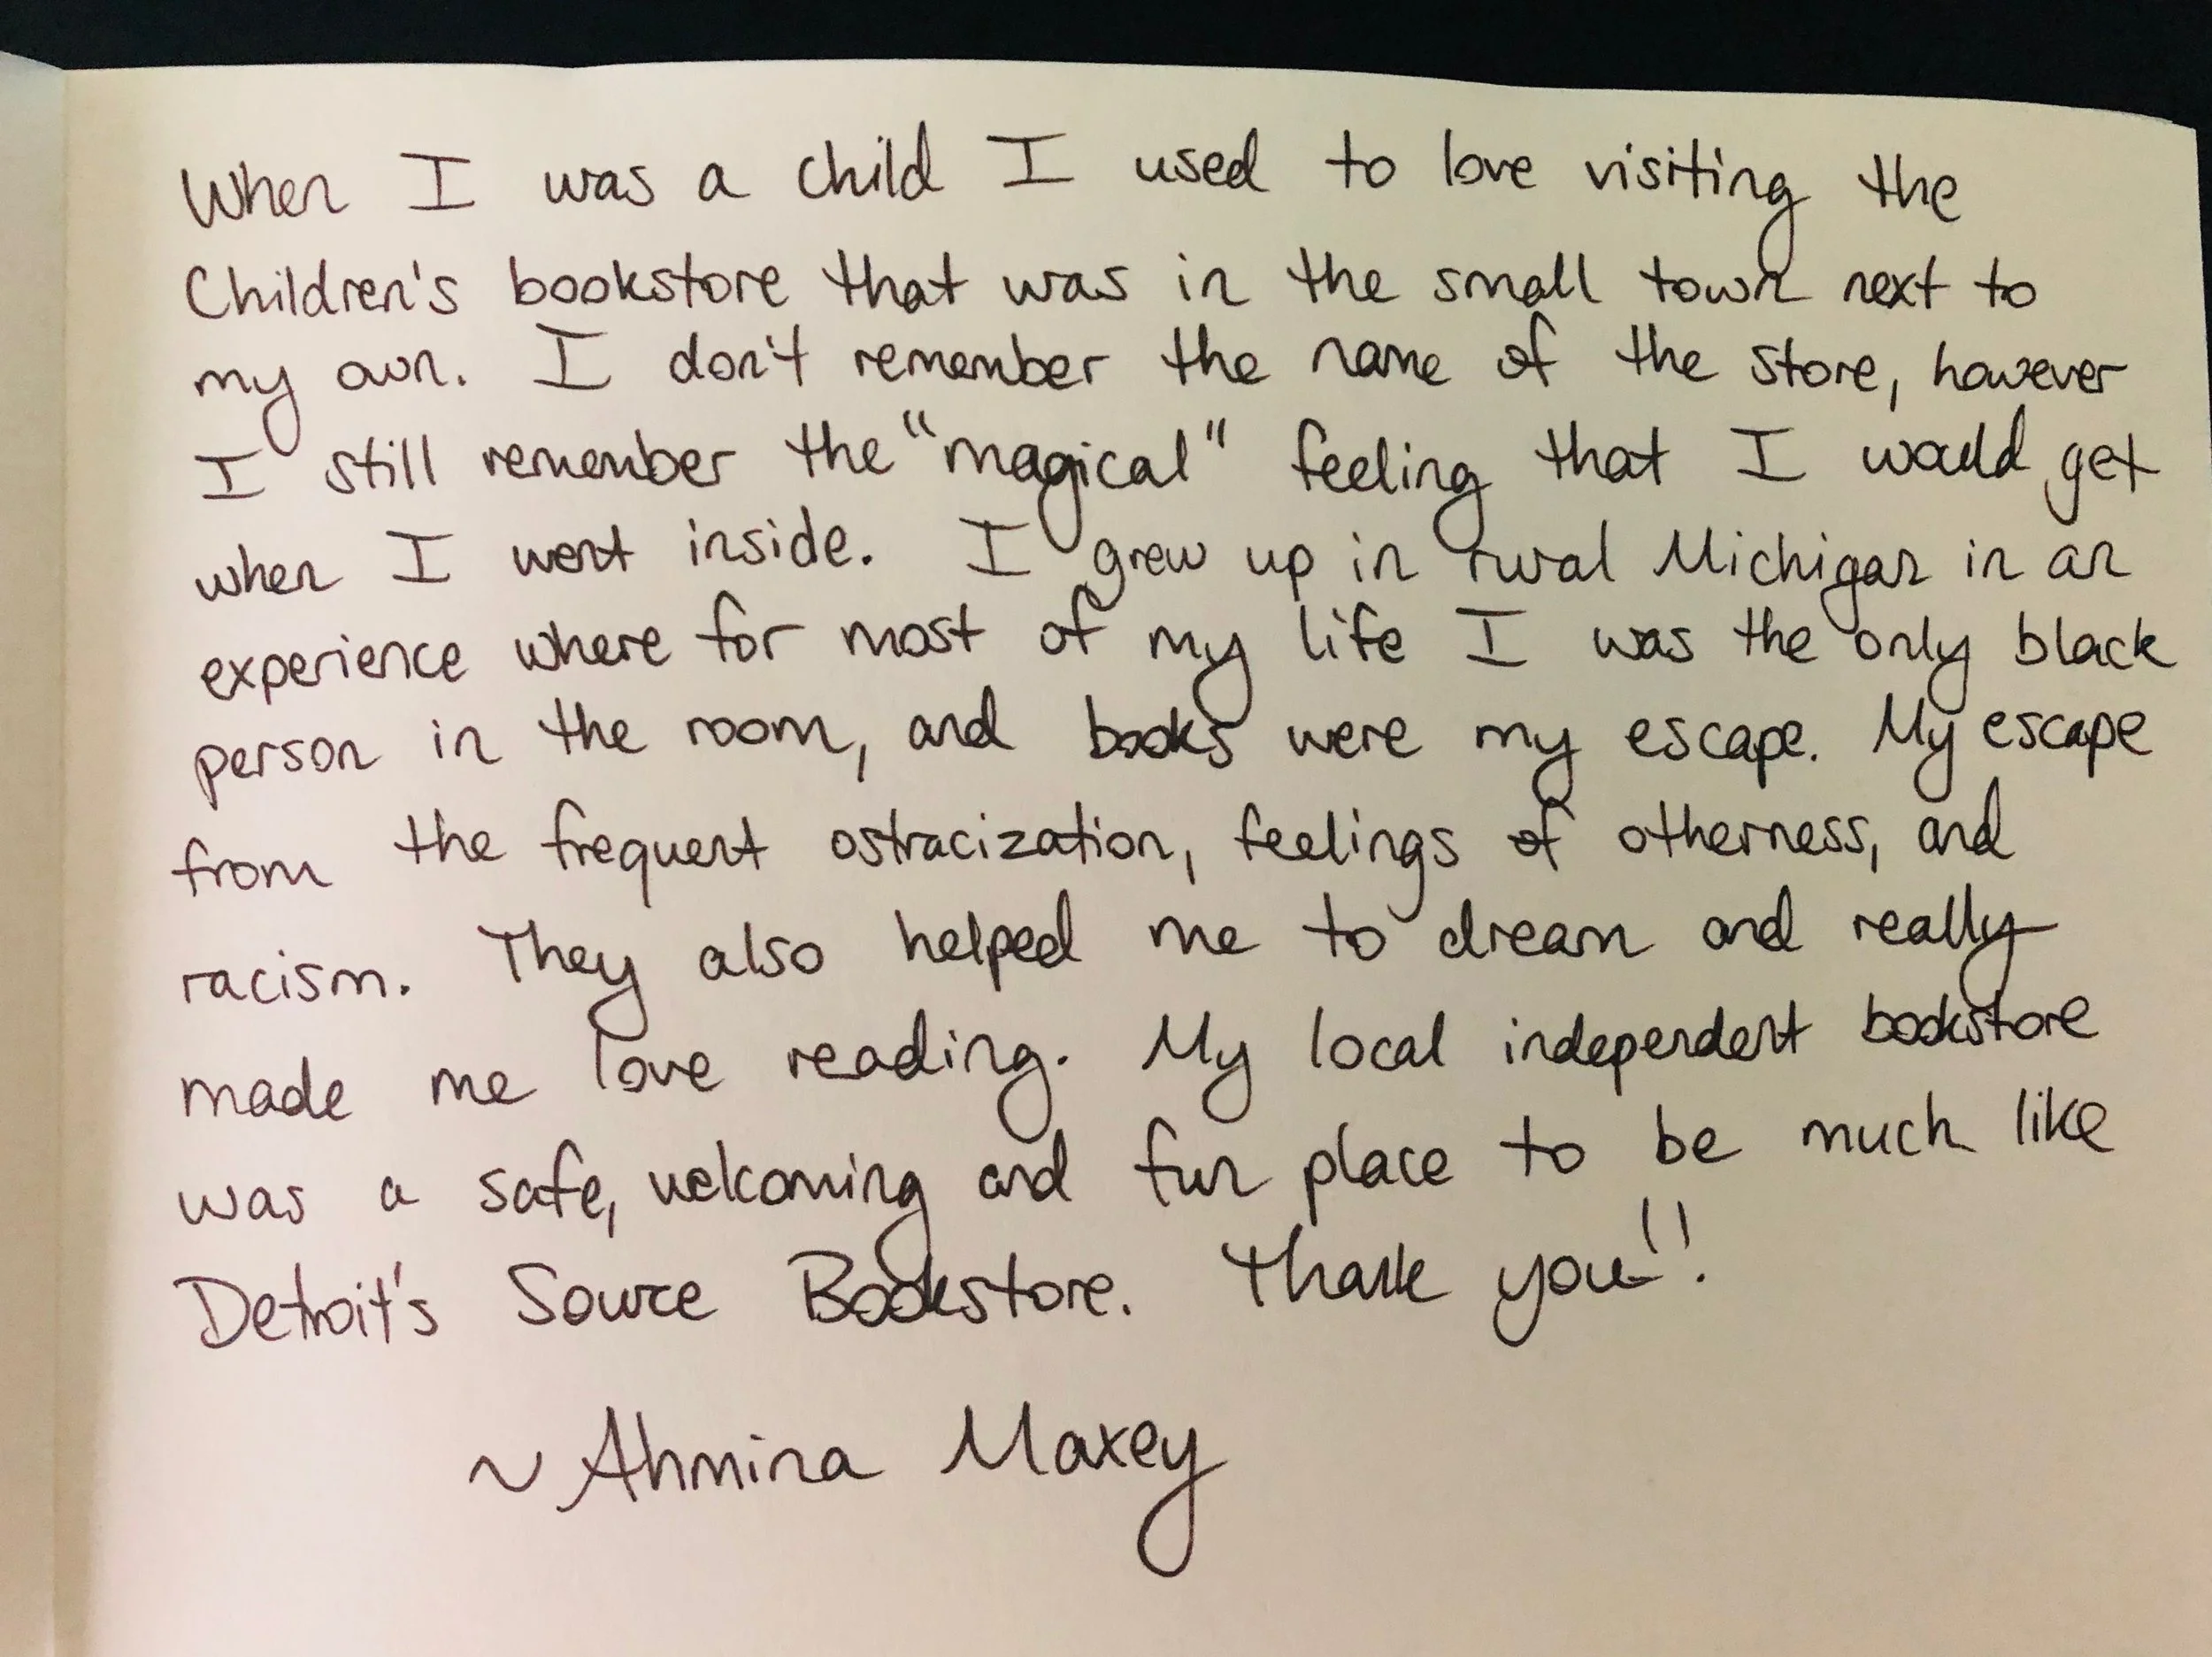 When I was a child I used to love visiting the
Children's bookstore that was in the small town next to
my own. I don't remember the name of the store, however
I still remember the "magical" feeling that I would get
when I went inside. I grew up in rural Michigan in an
experience where for most of my life I was the only black
person in the room, and books were my escape. My escape
from the frequent ostracization, feelings of otherness, and
racism. They also helped me to dream and really
made me love reading. My local independent bookstore
was a safe, welcoming and fun place to be much like
Detroit's Source Bookstore. Thank you!!
~ Ahmina Maxey